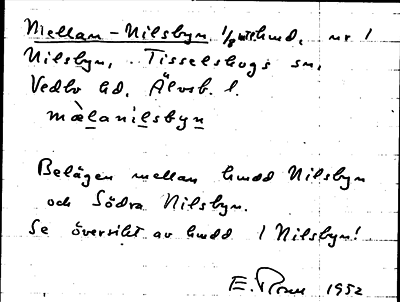 Mellan-Nilsbyn, 1/8 mtl hmd, nr 1
Nilsbyn, Tisselskogs sn,
Vedbo hd, Älvsb. l.
mæ̀lanilsbyn
Belägen mellan hmdd Nilsbyn
och Södra Nilsbyn.
Se översikt av hmdd 1 Nilsbyn!
E. 1952